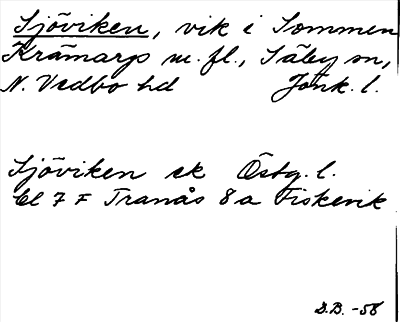 Sjöviken, vik i Sommen
Krämarp m. fl., Säby sn,
N. Vedbo hd Jönk. l.
Sjöviken ek Östg. l.
bl 7 F Tranås 8a Fiskevik
S.B. -58